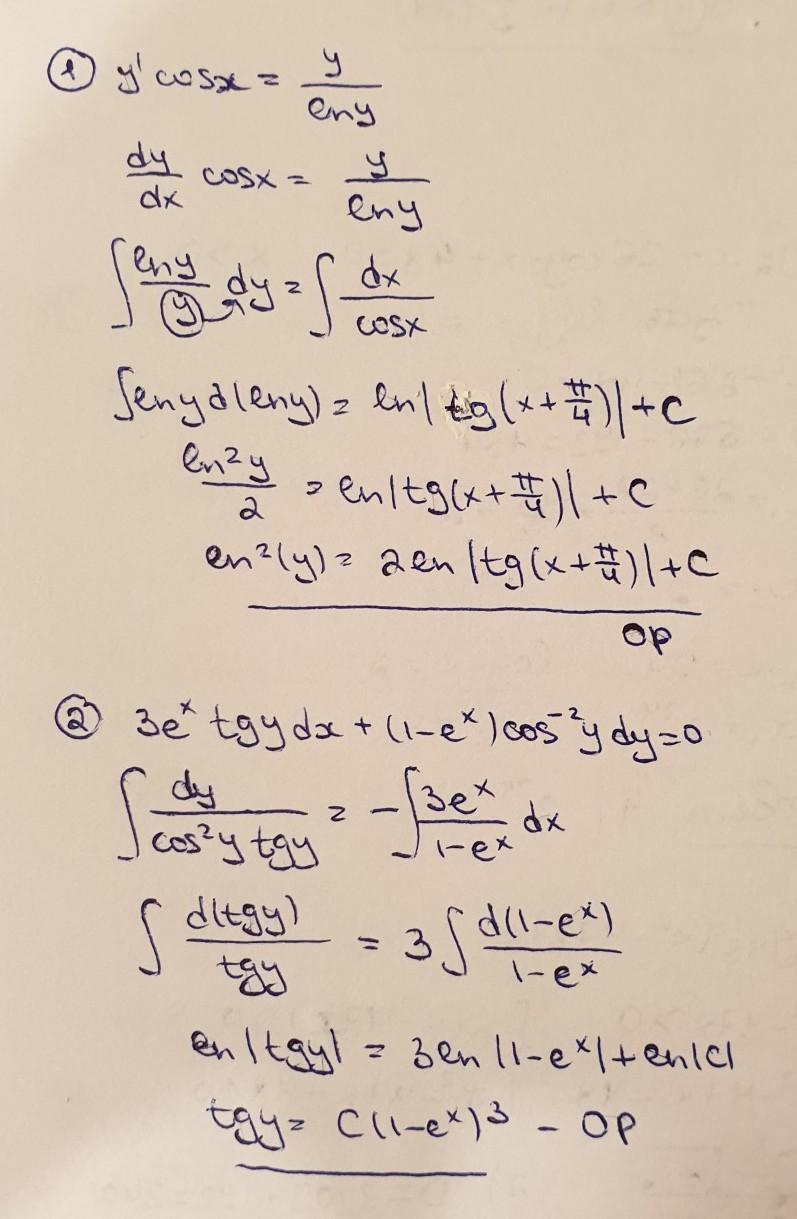 ① y' cosx = y/lny
dy/dx cosx = y/lny
∫ lny/y dy = ∫ dx/cosx
∫lny d(lny) = ln|tg(x+π/4)|+C
ln²y/2 = ln|tg(x+π/4)|+C
ln²(y) = 2ln|tg(x+π/4)|+C
OP
② 3eˣ tgy dx + (1-eˣ)cos⁻²y dy=0
∫ dy/(cos²y tgy) = -∫ 3eˣ/(1-eˣ) dx
∫ d(tgy)/tgy = 3∫ d(1-eˣ)/(1-eˣ)
ln|tgy| = 3ln|1-eˣ|+ln|C|
tgy = C(1-eˣ)³ - OP